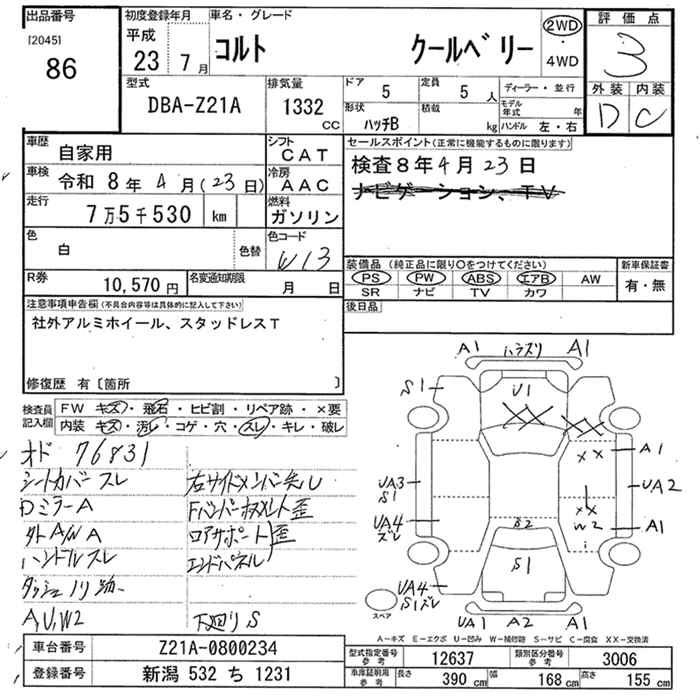 出品番号
[2045]
86
初度登録年月
平成
23 7月
車名・グレード
コルト クールベリー
2WD
・
4WD
評価点
3
型式
DBA-Z21A
排気量
1332 CC
ドア 5
定員 5 人
形状 ハッチB
積載 kg
ディーラー・並行
モデル年式 年
ハンドル 左・右
外装 内装
D C
車歴 自家用
シフト CAT
車検 令和 8年 4月(23日)
冷房 AAC
走行 7万5千530 km
燃料 ガソリン
色 白 色替
色コード W13
セールスポイント(正常に機能するものに限ります)
検査8年4月23日
ナビゲーション、TV
R券 10,570円
名変通知期限 月 日
装備品 (純正品に限り○をつけてください)
PS PW ABS エアB AW
SR ナビ TV カワ
新車保証書
有・無
後日品
注意事項申告欄(不具合内容等は具体的に記入して下さい)
社外アルミホイール、スタッドレスT
修復歴 有〔箇所 〕
検査員記入欄
FW キズ・飛石・ヒビ割・リペア跡・×要
内装 キズ・汚れ・コゲ・穴・スレ・キレ・破レ
オド 76831
シートカバースレ
DミラーA
外A/W A
ハンドルスレ
ダッシュノリ跡
A,U,W2
右サイドメンバー先U
Fバンパーホースメント歪
ロアサポート歪
エンドパネル
下廻りS
A1 ハラズリ A1
S1
U1
XX
XX
XX
A1
UA3
S1
UA2
UA4
ズレ
XX
W2
A1
S2
S1
UA4
S1ズレ
スペア
UA1 A2 A1
A-キズ E-エクボ U-凹み W-補修跡 S-サビ C-腐食 XX-交換済
車台番号 Z21A-0800234
登録番号 新潟 532 ち 1231
型式指定番号 参考 12637
類別区分番号 参考 3006
車庫証明用 参考 長さ 390 cm 幅 168 cm 高さ 155 cm